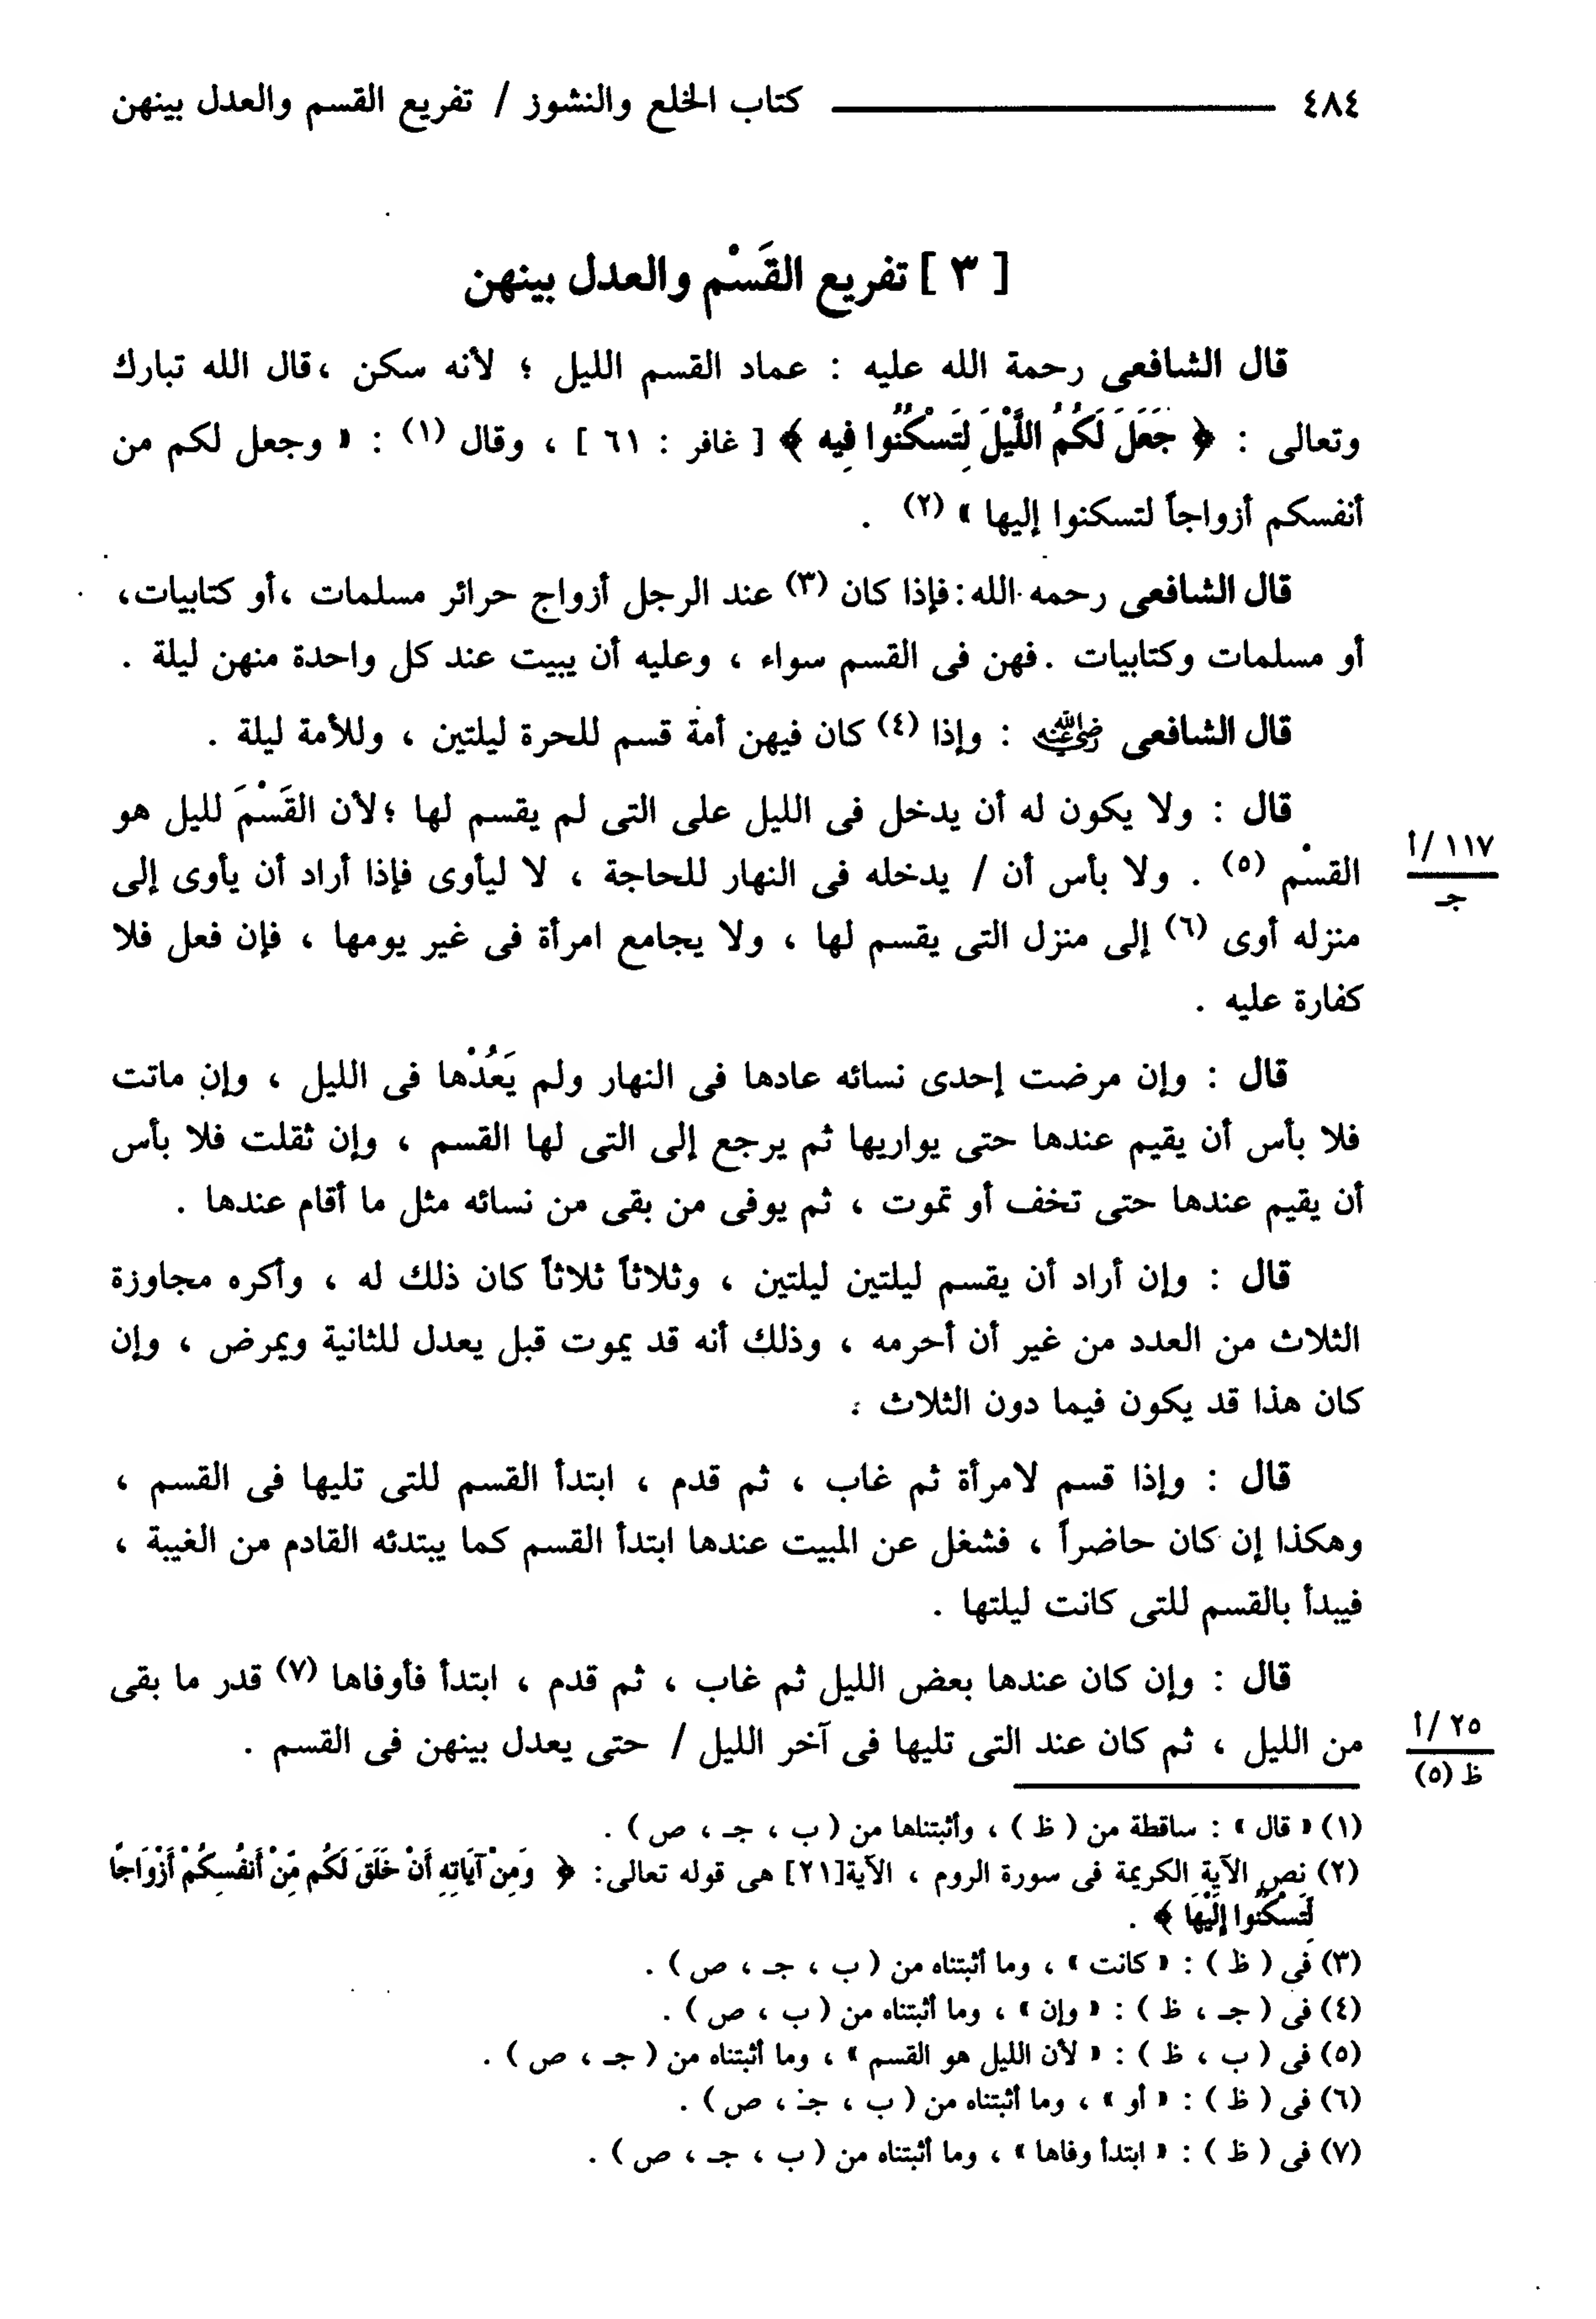 ٤٨٤ ــــــــــــــــــــ كتاب الخلع والنشوز / تفريع القسم والعدل بينهن
[ ٣ ] تفريع القَسْم والعدل بينهن
قال الشافعى رحمة الله عليه : عماد القسم الليل ؛ لأنه سكن ،قال الله تبارك
وتعالى : ﴿ جَعَلَ لَكُمُ اللَّيْلَ لِتَسْكُنُوا فِيهِ ﴾ [ غافر : ٦١ ] ، وقال (١) : « وجعل لكم من
أنفسكم أزواجاً لتسكنوا إليها » (٢) .
قال الشافعى رحمه الله :فإذا كان (٣) عند الرجل أزواج حرائر مسلمات ،أو كتابيات،
أو مسلمات وكتابيات .فهن فى القسم سواء ، وعليه أن يبيت عند كل واحدة منهن ليلة .
قال الشافعى رضي الله عنه : وإذا (٤) كان فيهن أمة قسم للحرة ليلتين ، وللأمة ليلة .
قال : ولا يكون له أن يدخل فى الليل على التى لم يقسم لها ؛لأن القَسْمَ لليل هو
القسْم (٥) . ولا بأس أن / يدخله فى النهار للحاجة ، لا ليأوى فإذا أراد أن يأوى إلى
١١٧ /أ
جـ
منزله أوى (٦) إلى منزل التى يقسم لها ، ولا يجامع امرأة فى غير يومها ، فإن فعل فلا
كفارة عليه .
قال : وإن مرضت إحدى نسائه عادها فى النهار ولم يَعُدْها فى الليل ، وإن ماتت
فلا بأس أن يقيم عندها حتى يواريها ثم يرجع إلى التى لها القسم ، وإن ثقلت فلا بأس
أن يقيم عندها حتى تخف أو تموت ، ثم يوفى من بقى من نسائه مثل ما أقام عندها .
قال : وإن أراد أن يقسم ليلتين ليلتين ، وثلاثاً ثلاثاً كان ذلك له ، وأكره مجاوزة
الثلاث من العدد من غير أن أحرمه ، وذلك أنه قد يموت قبل يعدل للثانية ويمرض ، وإن
كان هذا قد يكون فيما دون الثلاث .
قال : وإذا قسم لامرأة ثم غاب ، ثم قدم ، ابتدأ القسم للتى تليها فى القسم ،
وهكذا إن كان حاضراً ، فشغل عن المبيت عندها ابتدأ القسم كما يبتدئه القادم من الغيبة ،
فيبدأ بالقسم للتى كانت ليلتها .
قال : وإن كان عندها بعض الليل ثم غاب ، ثم قدم ، ابتدأ فأوفاها (٧) قدر ما بقى
من الليل ، ثم كان عند التى تليها فى آخر الليل / حتى يعدل بينهن فى القسم .
٢٥ /أ
ظ (٥)
(١) « قال » : ساقطة من ( ظ ) ، وأثبتناها من ( ب ، جـ ، ص ) .
(٢) نص الآية الكريمة فى سورة الروم ، الآية[٢١] هى قوله تعالى: ﴿ وَمِنْ آيَاتِهِ أَنْ خَلَقَ لَكُم مِّنْ أَنفُسِكُمْ أَزْوَاجًا
لِّتَسْكُنُوا إِلَيْهَا ﴾ .
(٣) فى ( ظ ) : « كانت » ، وما أثبتناه من ( ب ، جـ ، ص ) .
(٤) فى ( جـ ، ظ ) : « وإن » ، وما أثبتناه من ( ب ، ص ) .
(٥) فى ( ب ، ظ ) : « لأن الليل هو القسم » ، وما أثبتناه من ( جـ ، ص ) .
(٦) فى ( ظ ) : « أو » ، وما أثبتناه من ( ب ، جـ ، ص ) .
(٧) فى ( ظ ) : « ابتدأ وفاها » ، وما أثبتناه من ( ب ، جـ ، ص ) .